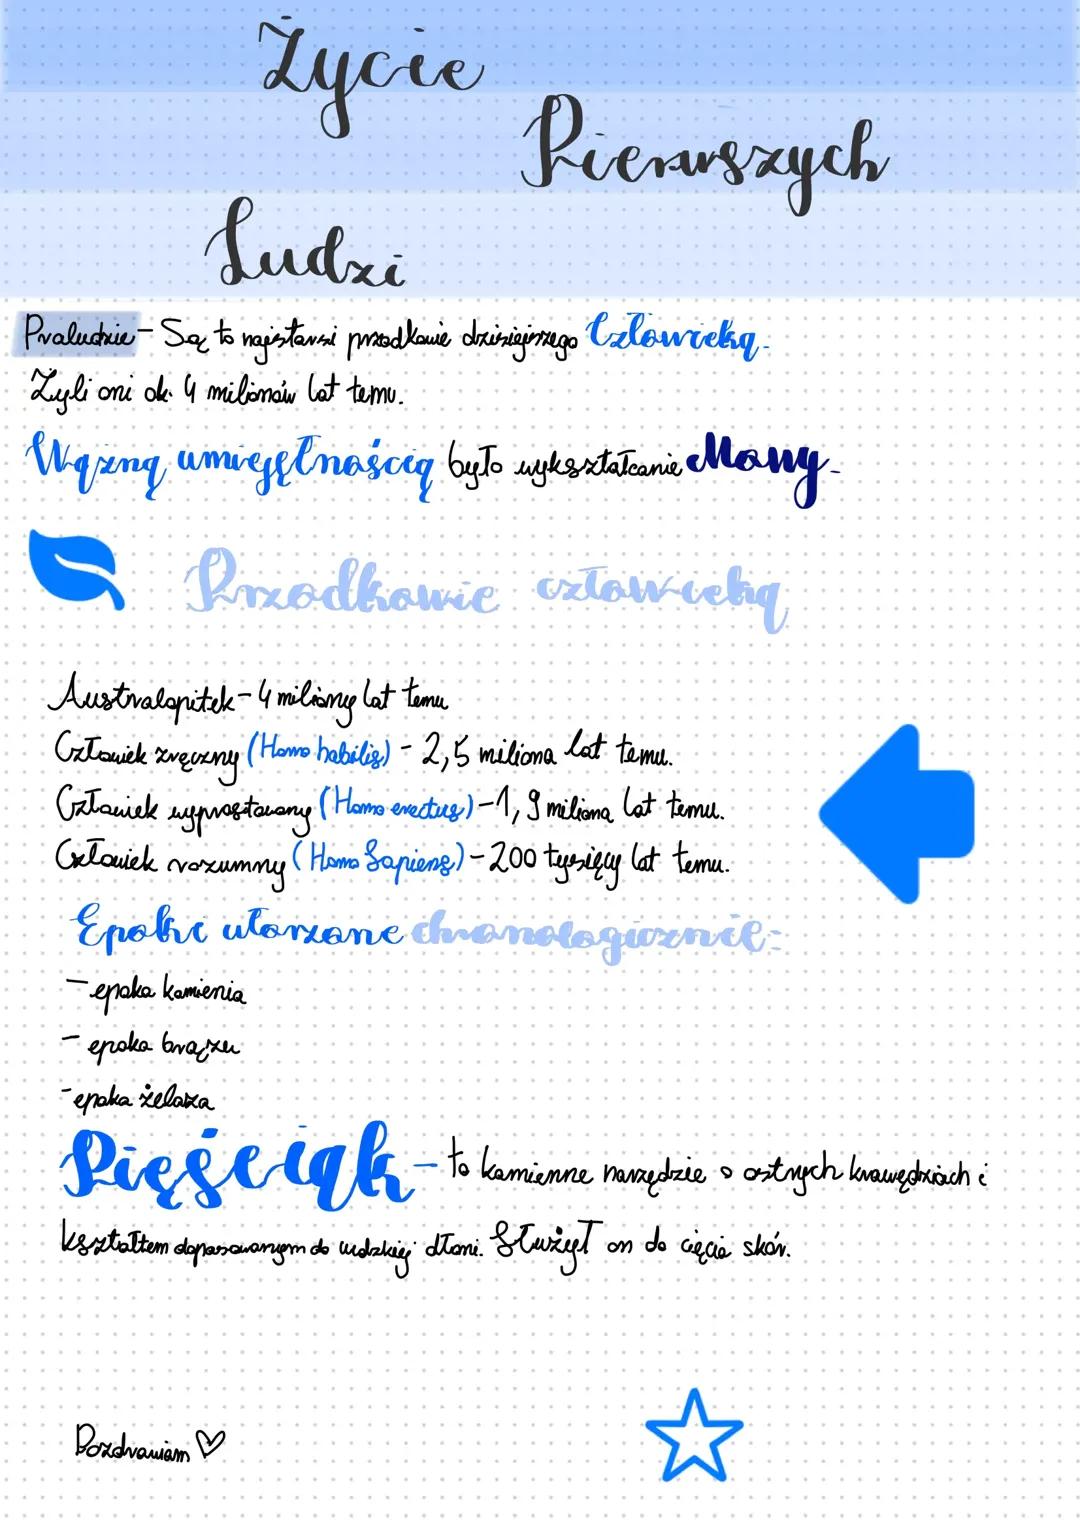 Życie
Pierwszych
Ludzi
Praludzie - Są to najstarsi przodkowie dzisiejszego Człowieka.
Żyli oni ok. 4 milionów lat temu.
Ważną umiejętnością było wykształcanie Mowy.
Przodkowie człowieka
Australopitek - 4 miliony lat temu
Człowiek zręczny (Homo habilis) - 2,5 miliona lat temu.
Człowiek wyprostowany (Homo erectus) - 1,9 miliona lat temu.
Człowiek rozumny (Homo Sapiens) - 200 tysięcy lat temu.
Epoki ułorzone chronologicznie:
- epoka kamienia
- epoka brązu
- epoka żelaza
Pięściak - to kamienne narzędzie o ostrych krawędziach i
kształtem dopasowanym do ludzkiej dłoni. Służył on do cięcia skór.
Pozdrawiam ♡